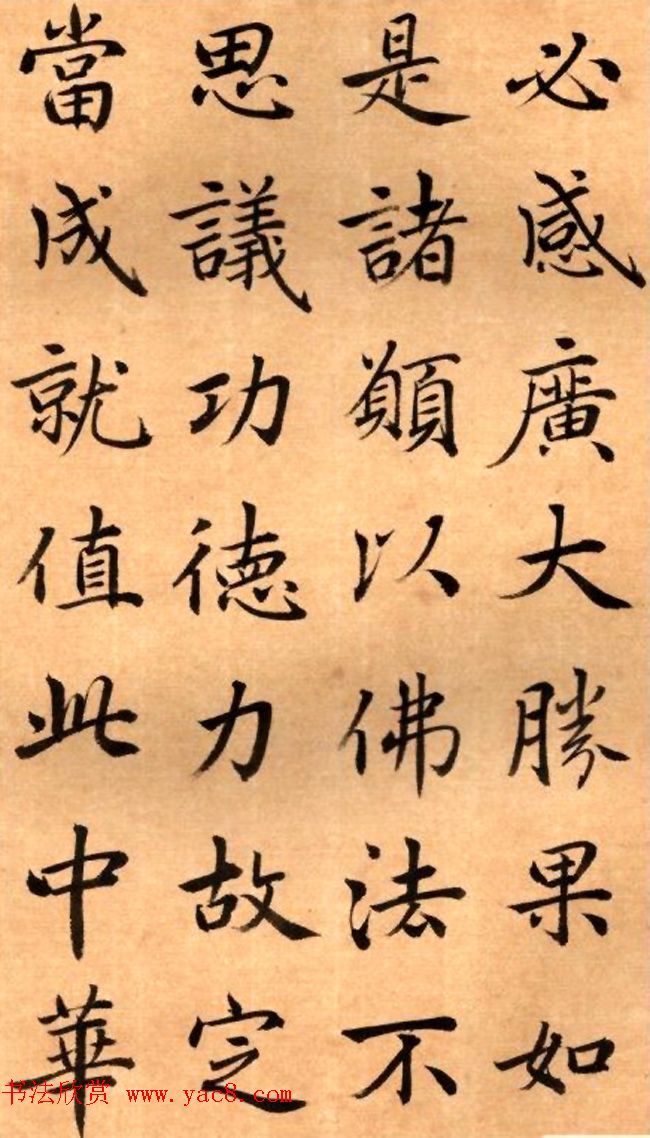 必感廣大勝果如
是諸願以佛法不
思議功德力故定
當成就值此中華
书法欣赏 www.yac8.com